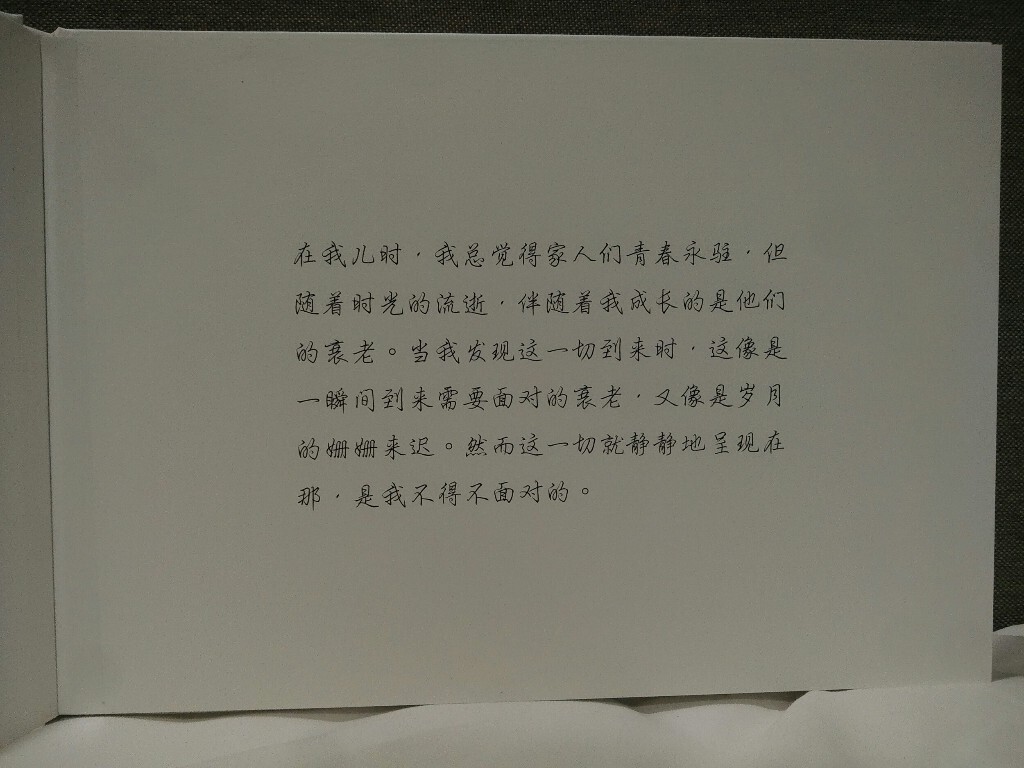 在我儿时，我总觉得家人们青春永驻，但
随着时光的流逝，伴随着我成长的是他们
的衰老。当我发现这一切到来时，这像是
一瞬间到来需要面对的衰老，又像是岁月
的姗姗来迟。然而这一切就静静地呈现在
那，是我不得不面对的。